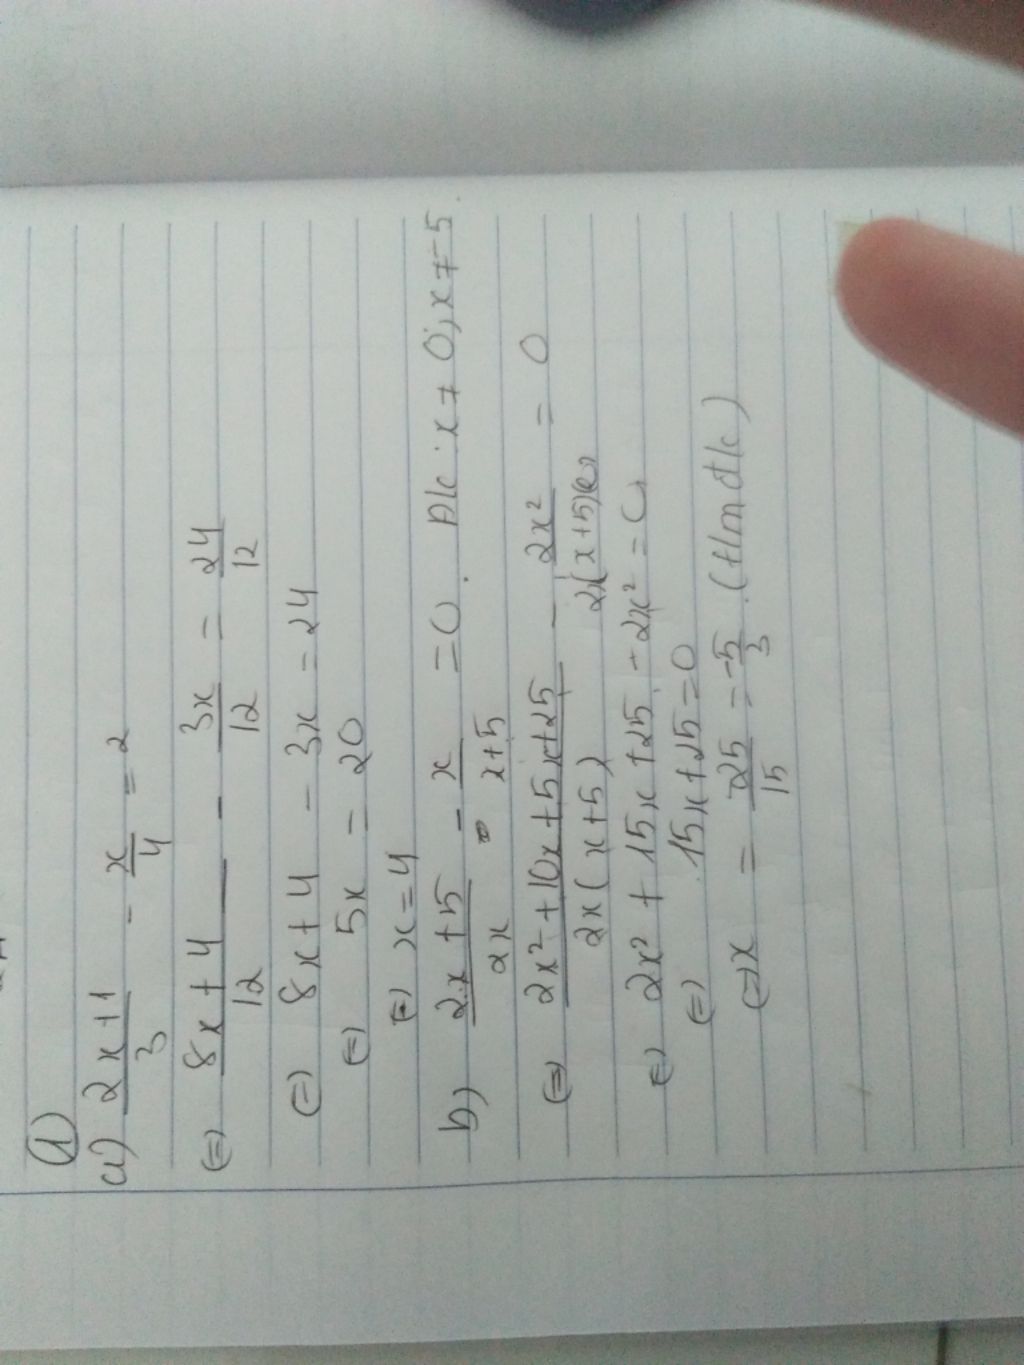 ①
a) (2x+1)/3 - x/4 = 2
(=) (8x+4)/12 - 3x/12 = 24/12
(=) 8x+4 - 3x = 24
(=) 5x = 20
(=) x = 4
b) (2x+5)/2x - x/(x+5) = 0. Đk: x ≠ 0; x ≠ -5.
(=) (2x²+10x+5x+25)/2x(x+5) - 2x²/2x(x+5) = 0
(=) 2x² + 15x + 25 - 2x² = 0
(=) 15x+25=0
(=) x = -25/15 = -5/3 (tlmđk)